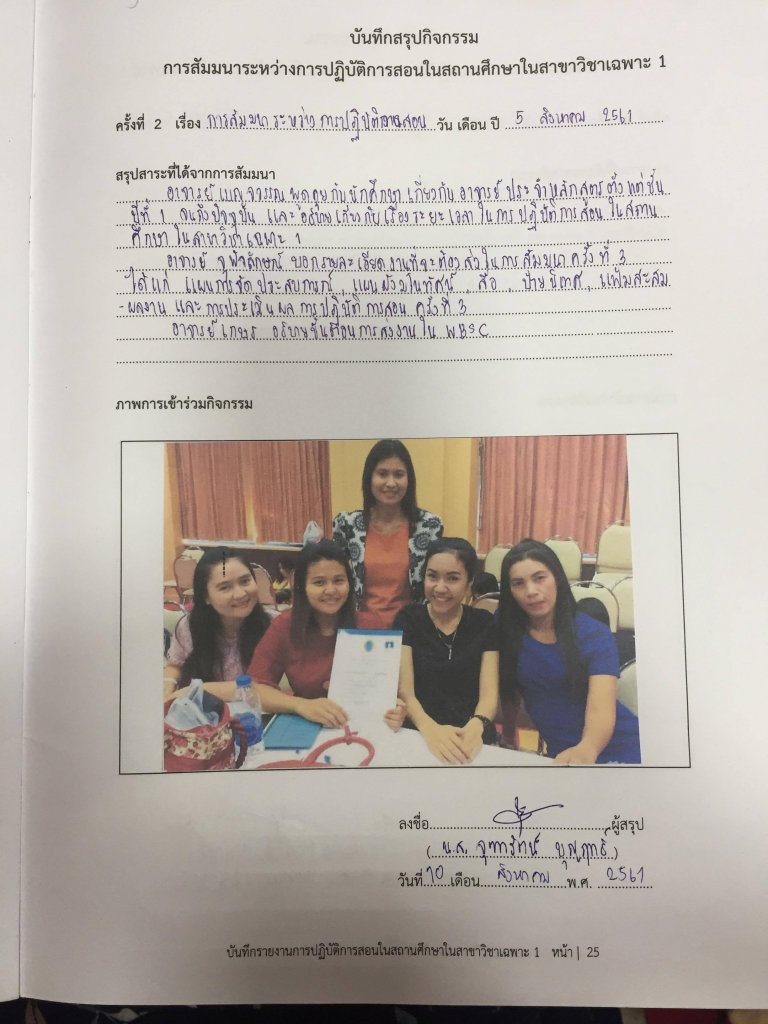 บันทึกสรุปกิจกรรม
การสัมมนาระหว่างการปฏิบัติการสอนในสถานศึกษาในสาขาวิชาเฉพาะ 1
ครั้งที่ 2 เรื่อง การสัมมนาระหว่างการปฏิบัติการสอน วัน เดือน ปี 5 สิงหาคม 2561
สรุปสาระที่ได้จากการสัมมนา
อาจารย์เบญจวรรณ พูดคุยกับนักศึกษา เกี่ยวกับ อาจารย์ประจำหลักสูตร ตั้งแต่ชั้น
ปีที่ 1 จนถึงปัจจุบัน และ อธิบายเกี่ยวกับเรื่องระยะเวลาในการปฏิบัติการสอนในสถาน
ศึกษาในสาขาวิชาเฉพาะ 1
อาจารย์ บอกรายละเอียดงานที่จะต้องส่งในการสัมมนาครั้งที่ 3
ได้แก่ แผนการจัดประสบการณ์ , แผนผังมโนทัศน์ , สื่อ , ป้ายนิเทศ , แฟ้มสะสม
-ผลงาน และการประเมินผลการปฏิบัติการสอน ครั้งที่ 3
อาจารย์เกษร อธิบายขั้นตอนการส่งงานใน WBSC
ภาพการเข้าร่วมกิจกรรม
ลงชื่อ ผู้สรุป
(น.ส. จุฑารัตน์ บุญฤทธิ์)
วันที่ 10 เดือน สิงหาคม พ.ศ. 2561
บันทึกรายงานการปฏิบัติการสอนในสถานศึกษาในสาขาวิชาเฉพาะ 1 หน้า | 25